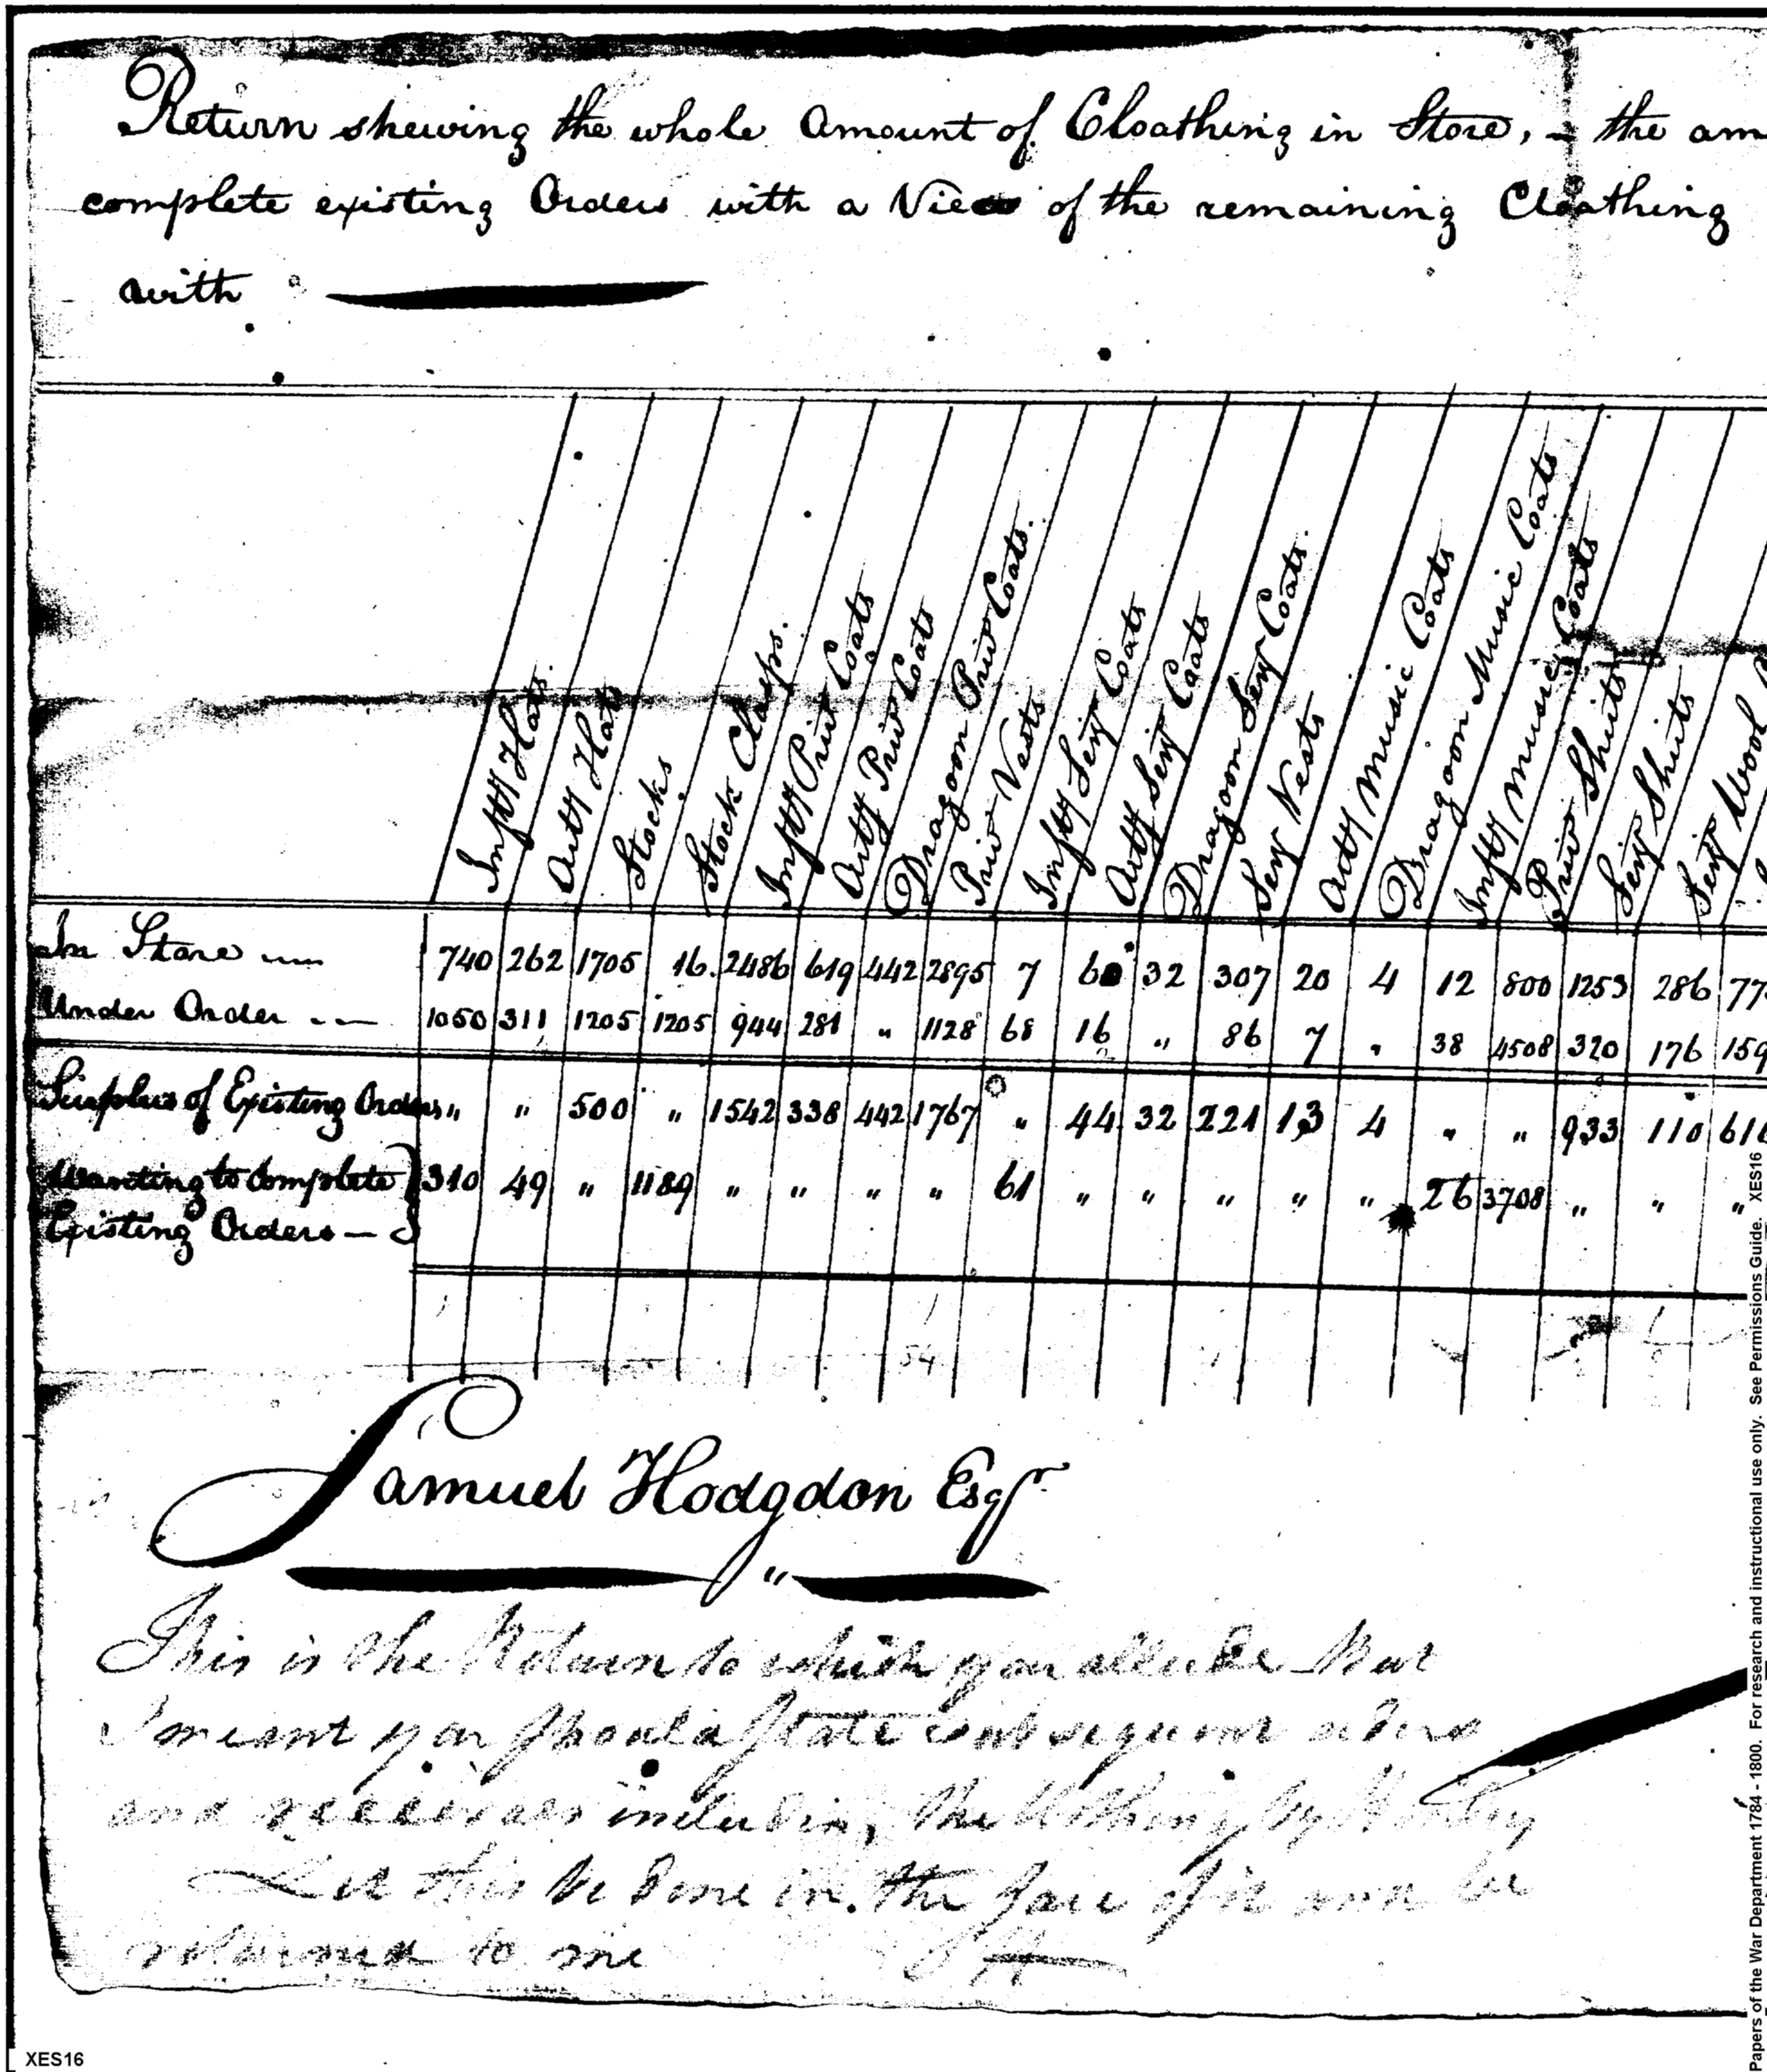 Return shewing the whole Amount of Cloathing in Store, - the am
complete existing Orders with a View of the remaining Cloathing
with
Inft'y Hats
Art'y Hats
Stocks
Stock Clasps.
Inft'y Priv Coats
Art'y Priv Coats
Dragoon Priv Coats.
Priv Vests
Inft'y Serj't Coats
Art'y Serj't Coats
Dragoon Serj't Coats.
Serj't Vests
Art'y Music Coats
Dragoon Music Coats
Inft'y Music Coats
Priv Shirts
Serj't Shirts
Serj't Wool
In Store 740 262 1705 16 2486 619 442 2895 7 60 32 307 20 4 12 800 1253 286 77
Under Order 1050 311 1205 1205 944 281 " 1128 68 16 " 86 7 " 38 4508 320 176 159
Surplus of Existing Orders " " 500 " 1542 338 442 1767 " 44 32 221 13 4 " " 933 110 616
Wanting to complete 310 49 " 1189 " " " " 61 " " " " " 26 3708 " " "
Existing Orders
Samuel Hodgdon Esqr
This is the Return to which you allude But
I meant you should state subsequent orders
and including the Clothing by
Let this be done in the face of it and be
returned to me SH
Papers of the War Department 1784 - 1800. For research and instructional use only. See Permissions Guide. XES16
XES16